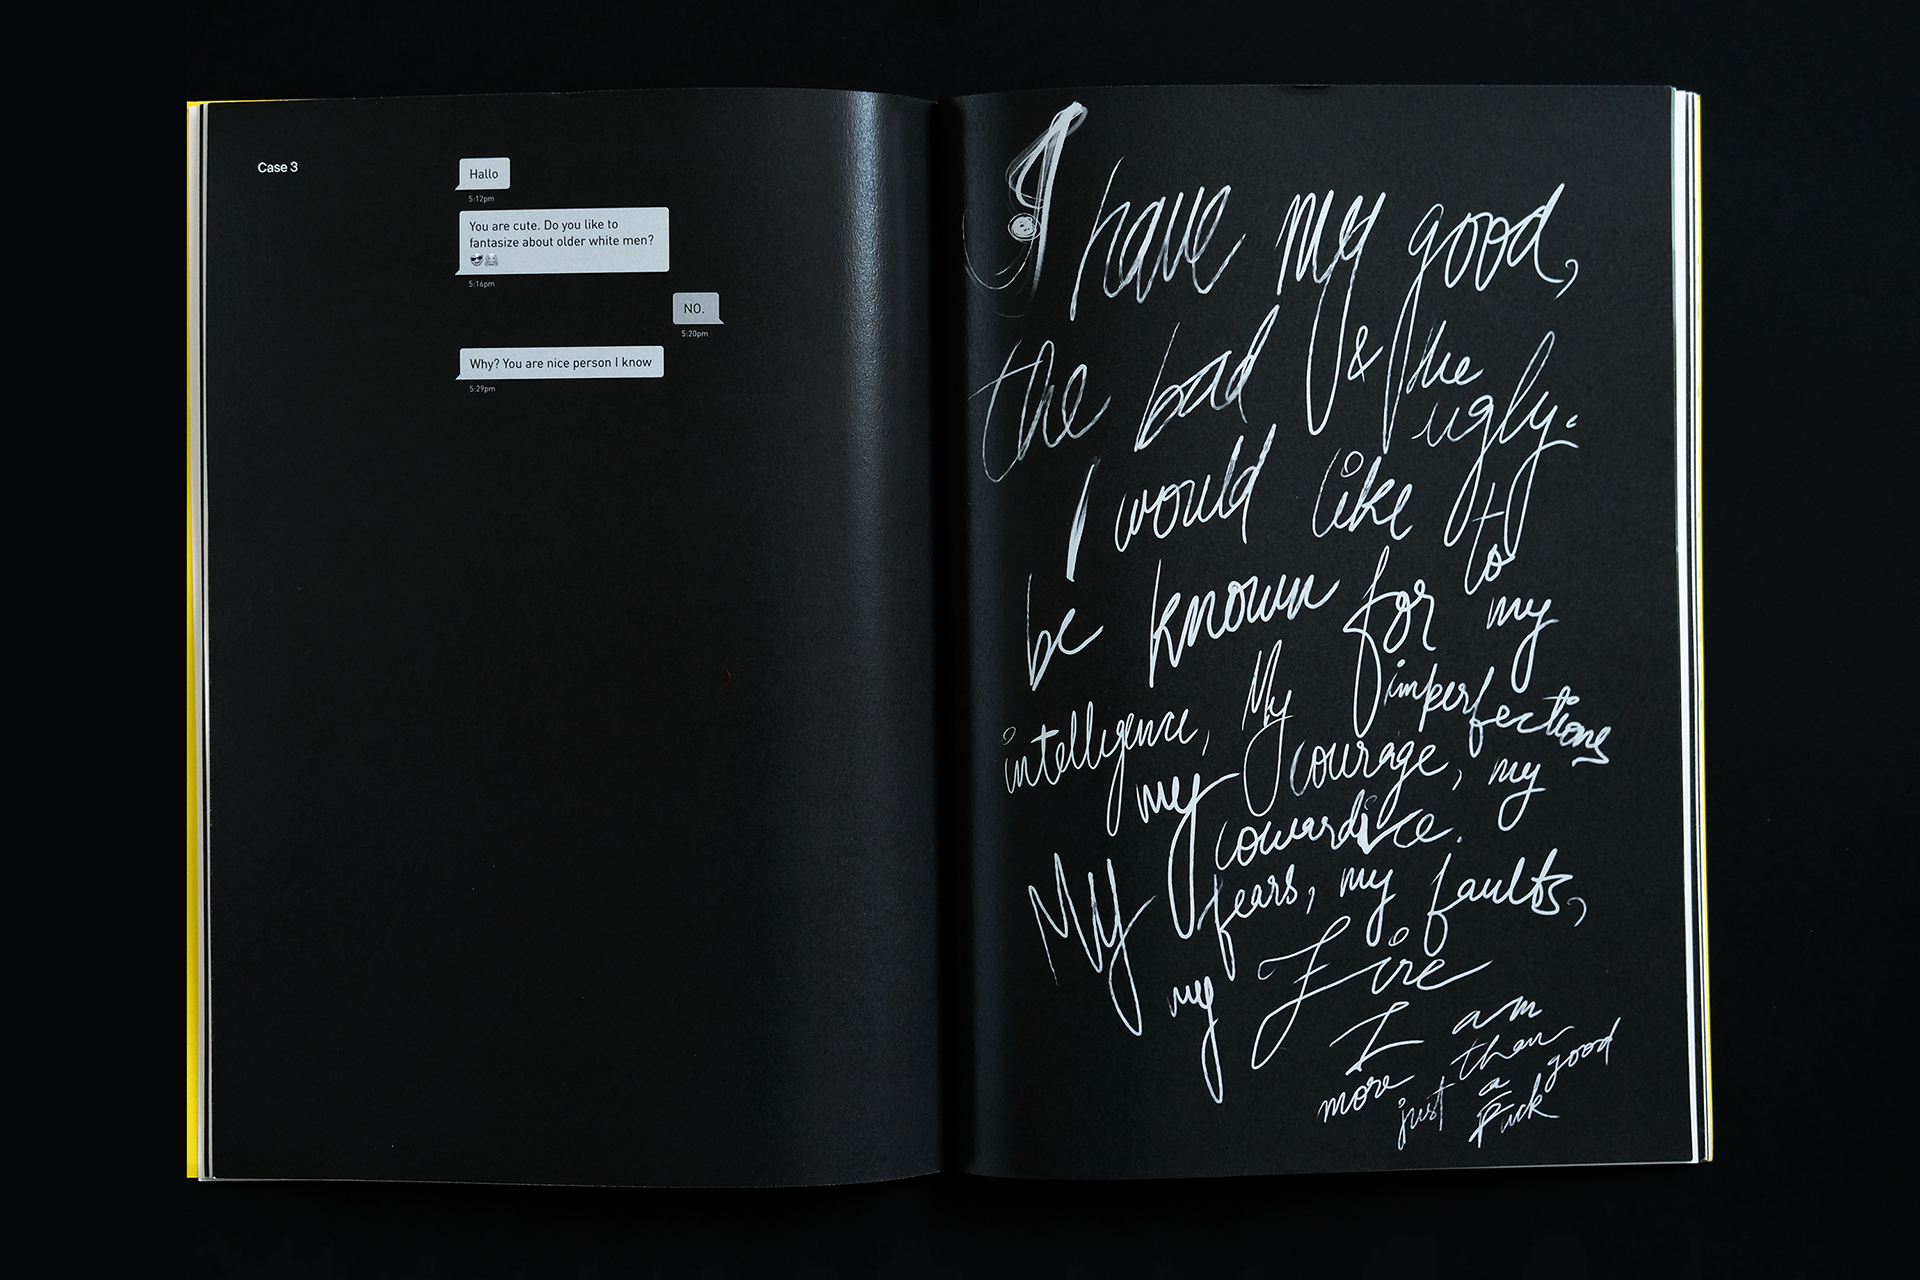 Case 3
Hallo
5:12pm
You are cute. Do you like to
fantasize about older white men?
😎🙌
5:16pm
NO.
5:20pm
Why? You are nice person I know
5:29pm
I have my good,
the bad & the
ugly.
I would like to
be known for my
intelligence, My imperfections
my courage, my
cowardice.
My fears, my faults,
my Fire
I am
more than
just a good
Fuck